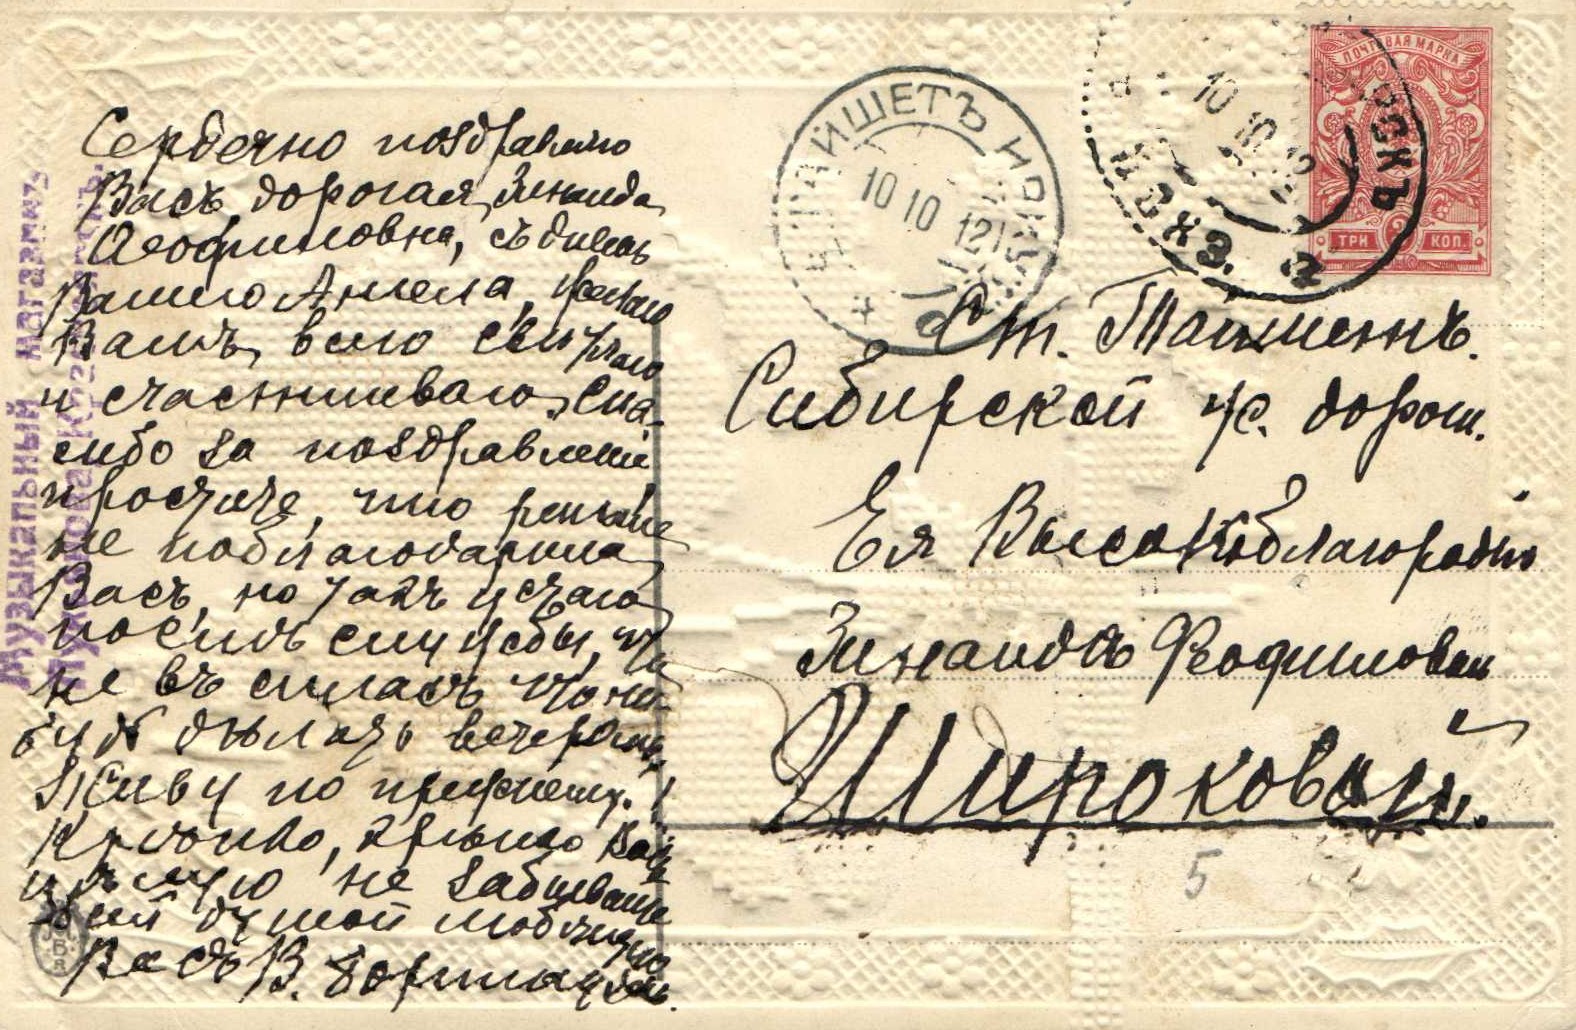 Сердечно поздравляю
Васъ, дорогая Зинаида
Ѳеофиловна, съ днемъ
Вашего Ангела, желаю
Вамъ всего
и счастливаго. Спа-
сибо за поздравленіе,
простите, что раньше
не поблагодарила
Васъ, но такъ устаю
послѣ службы, что
не въ силахъ что ни-
будь дѣлать вечеромъ.
Живу по прежнему.
Крѣпко, крѣпко Васъ
цѣлую не забывайте
душой любящую
Васъ В.
Музыкальный магазинъ
ТАЙШЕТЪ ИРКУТ.
10 10 12
10 10 12
ПОЧТОВАЯ МАРКА
ТРИ 3 КОП.
Ст. Тайшетъ.
Сибирской ж. дороги.
Ея Высокоблагородію
Зинаидѣ Ѳеофиловнѣ
Широковой.
5